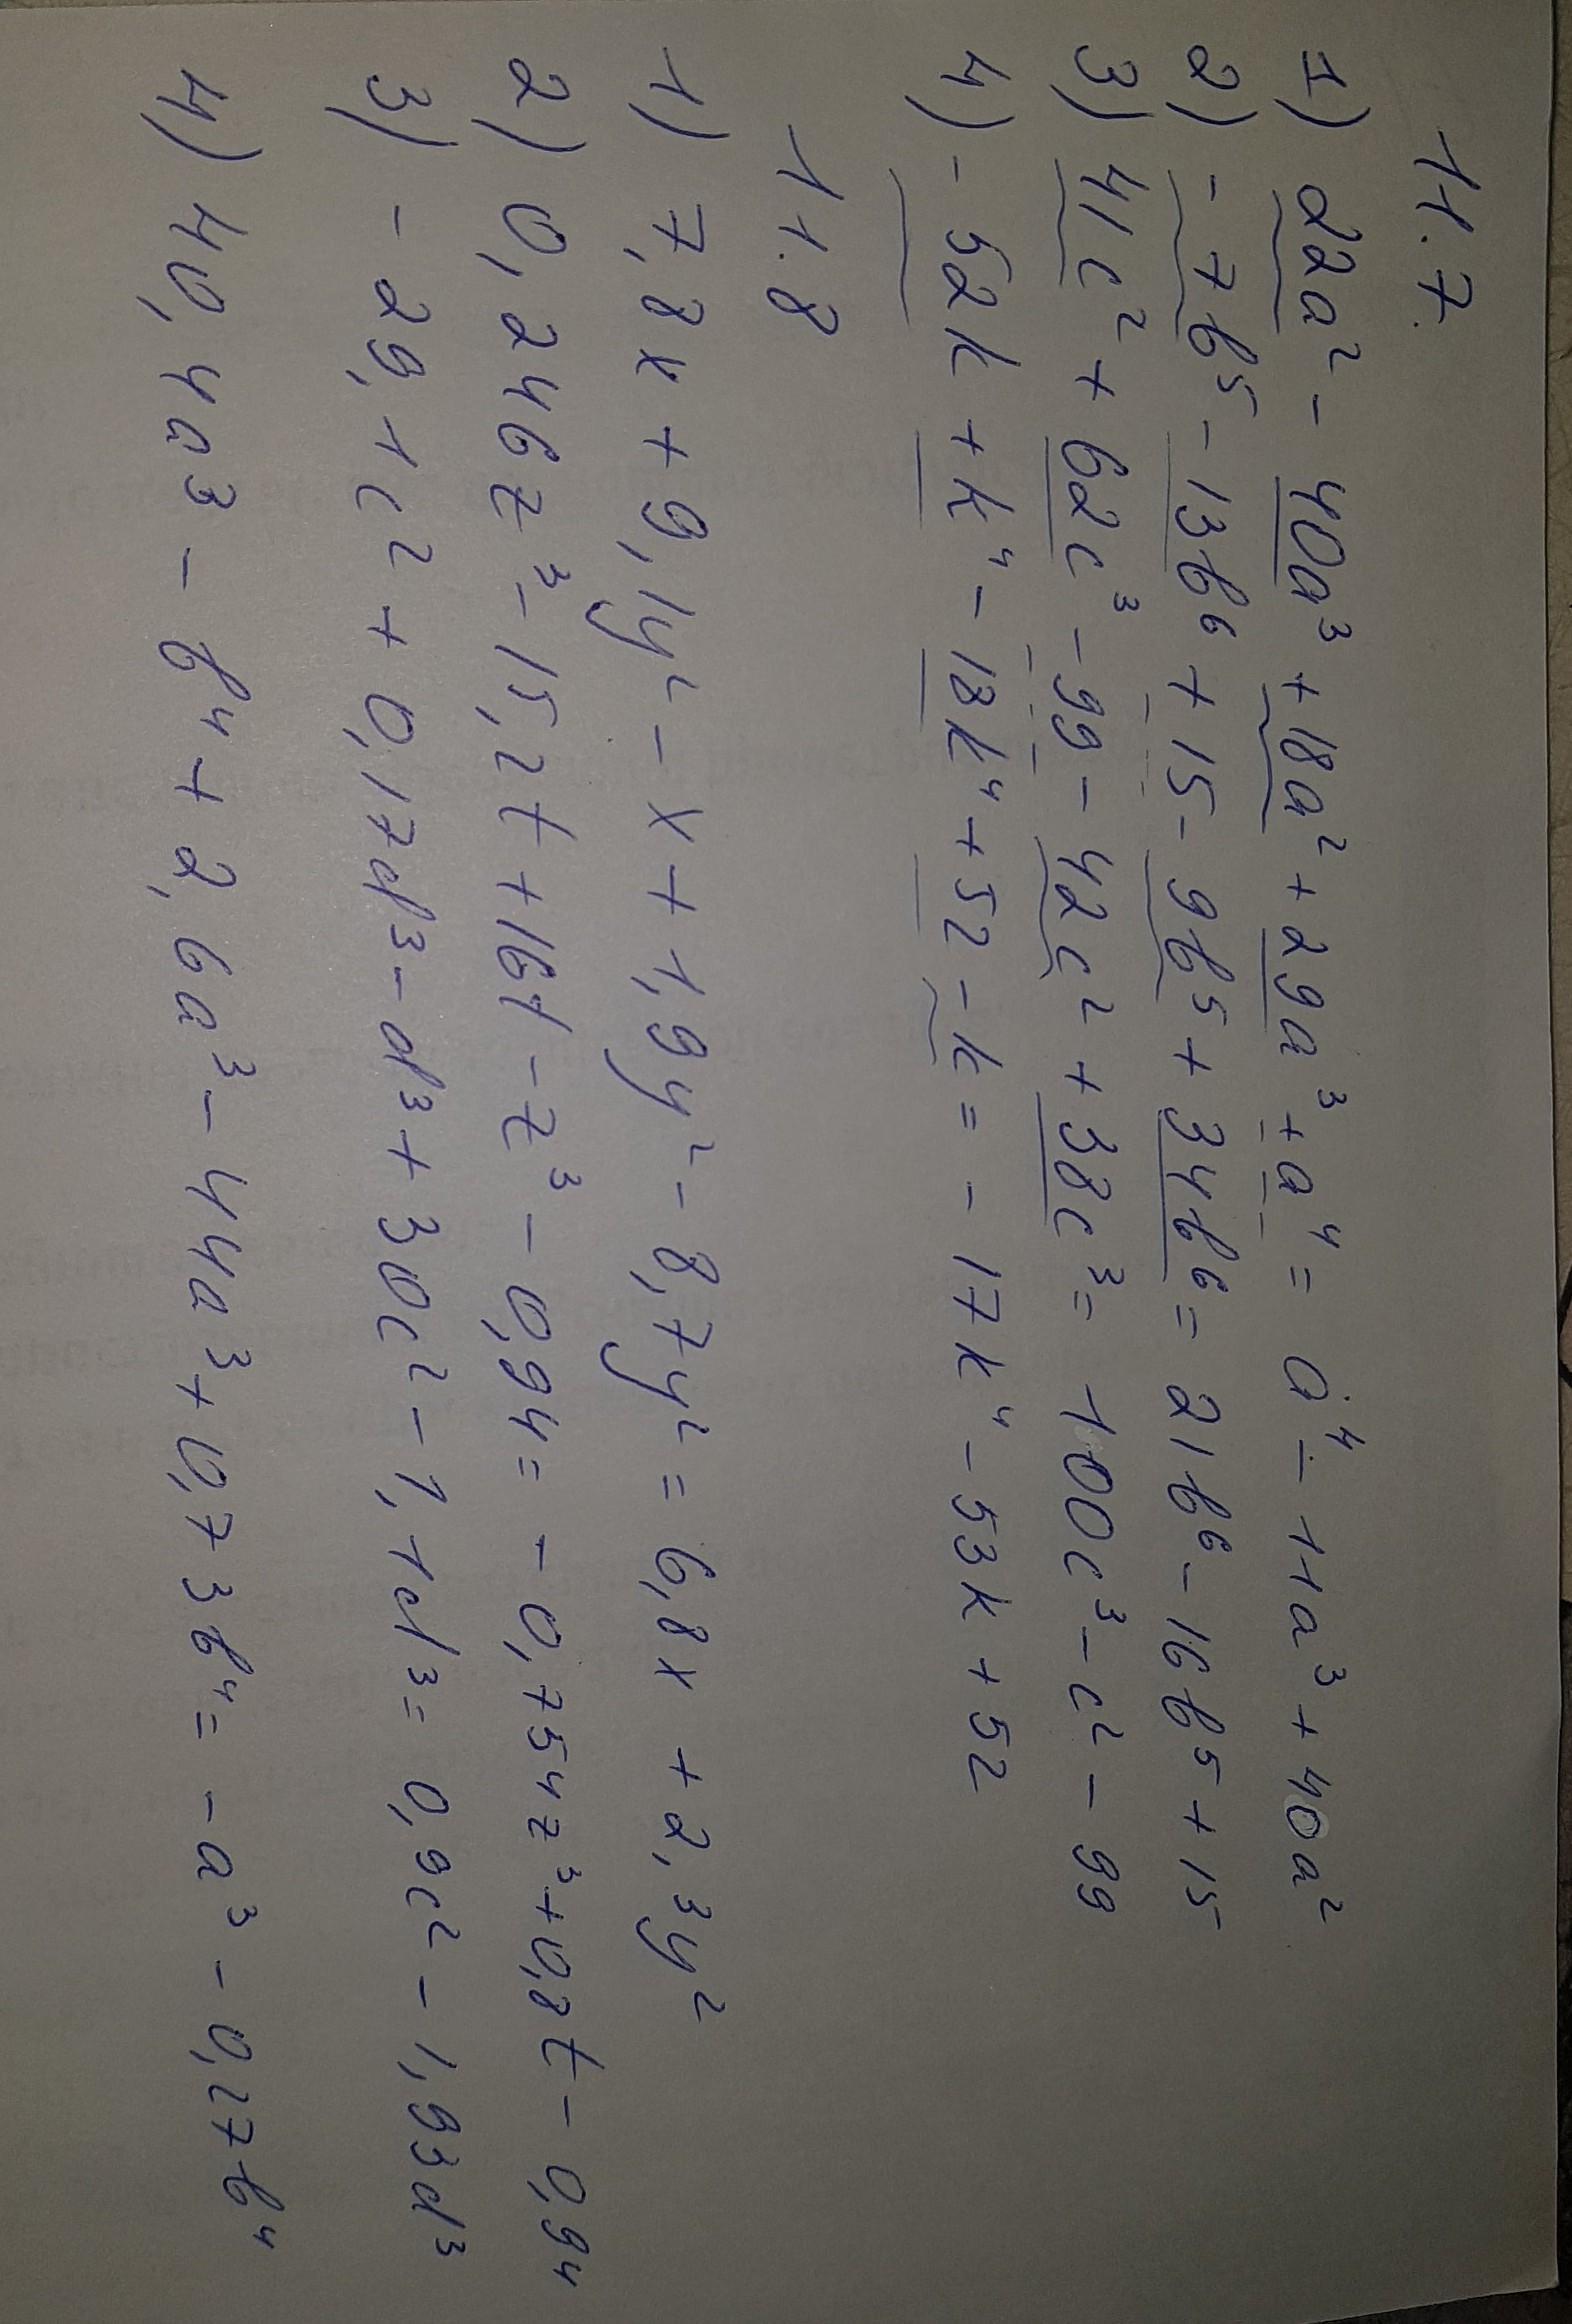 11.7.
1) 22a² - 40a³ + 18a² + 29a³ + a⁴ = a⁴ - 11a³ + 40a²
2) - 7b⁵ - 13b⁶ + 15 - 9b⁵ + 34b⁶ = 21b⁶ - 16b⁵ + 15
3) 41c² + 62c³ - 99 - 42c² + 38c³ = 100c³ - c² - 99
4) - 52k + k⁴ - 18k⁴ + 52 - k = - 17k⁴ - 53k + 52
11.8
1) 7,8x + 9,1y² - x + 1,9y² - 8,7y² = 6,8x + 2,3y²
2) 0,246z³ - 15,2t + 16t - z³ - 0,94 = - 0,754z³ + 0,8t - 0,94
3) - 29,1c² + 0,17d³ - d³ + 30c² - 1,1d³ = 0,9c² - 1,93d³
4) 40,4a³ - b⁴ + 2,6a³ - 44a³ + 0,73b⁴ = - a³ - 0,27b⁴